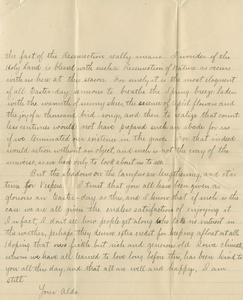 the fact of the Resurrection really means. I wonder if the
Holy Land is blessed with such a Resurrection of Nature as occurs
with us here at this season. For surely it is the most eloquent
of all Easter-day sermons to breathe the spring breeze laden
with the warmth of sunny skies, the essence of lipid flowers and
the joy of a thousand bird-songs, and then to realize that count-
less centuries would not have prepared such an abode for us
if we terminated our existence in the grave. For that indeed
would action without an object and such is not the way of the
universe, as we had only to look about us to see.
But the shadows on the campus are lengthening, and it is
time for supper. I trust that you all have been given as
glorious an Easter-day as this, and I know that if such is the
case we are all given the endless satisfaction of enjoying it.
In fact, I don't see how people get along who take no interest in
the weather, perhaps they deserve extra credit for keeping afloat at all.
Hoping that our fickle but rich and generous old Iowa climate,
whom we have all learned to love long before this, has been kind to
you all this day, and that all are well and happy, I am
still
Your Alda.